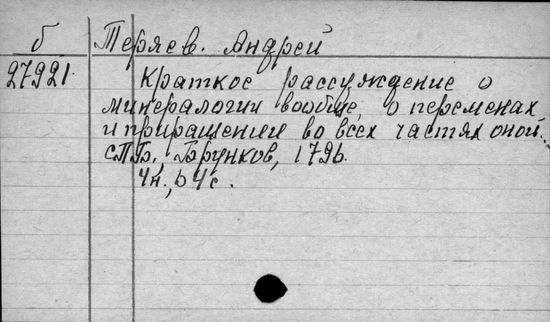 б Теряев. Андрей
27921. Краткое рассуждение о
минералогии вообще, о переменах
и приращении во всех частях оной...
СПБ., Брунков, 1796.
4н., 64с.